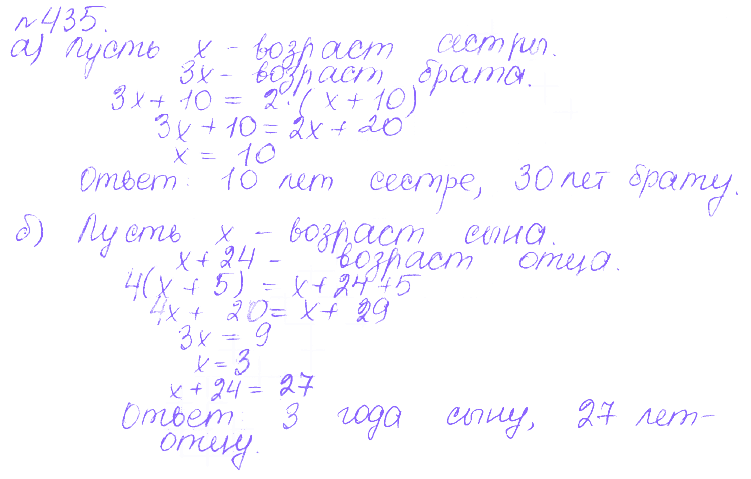 №435.
а) Пусть x - возраст сестры.
3x - возраст брата.
3x + 10 = 2·(x + 10)
3x + 10 = 2x + 20
x = 10
Ответ: 10 лет сестре, 30 лет брату.
б) Пусть x - возраст сына.
x + 24 - возраст отца.
4(x + 5) = x + 24 + 5
4x + 20 = x + 29
3x = 9
x = 3
x + 24 = 27
Ответ: 3 года сыну, 27 лет -
отцу.